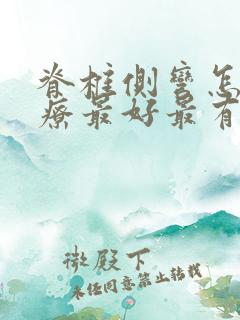 脊柱侧弯怎
疗最好最有
微殿下
未经同意禁止转载